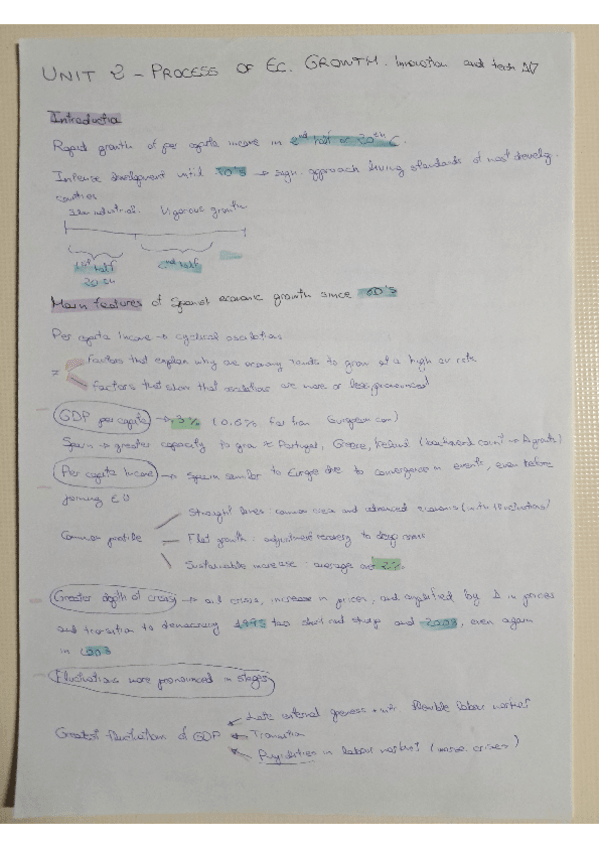 UNIT 2 - PROCESS OF EC. GROWTH. Innovation and tech
Introduction
Rapid growth of per capita income in 2nd half of 20th C.
Intense development until 70's → sign. approach living standards of most develop.
countries
Vigorous growth
1st half 2nd half
20th
Main features of Spanish economic growth since 60's
Per capita income → cyclical oscillations
= Factors that explain why an economy tends to grow at a high or rate
Factors that show that oscillations are more or less pronounced
GDP per capita → 3% (0.6% faster than European con)
Spain → greater capacity to grow ≈ Portugal, Greece, Ireland (backward count → Agrats)
Per capita income → Spain similar to Europe due to convergence in events, even before
joining EU
Straight lines: common crisis and advanced economies (with fluctuations)
Common profile Flat growth: adjustment recovery to deep
Sustainable increase: average over 2%
Greater depth of crises → oil crisis, increase in prices, and amplified by Δ in prices
and transition to democracy 1993 two short and sharp and 2008, even again
in
Fluctuations more pronounced in stages
Late external openness + not flexible labour market
Greatest fluctuations of GDP Transition
Rigidities in labour market (worse crises)